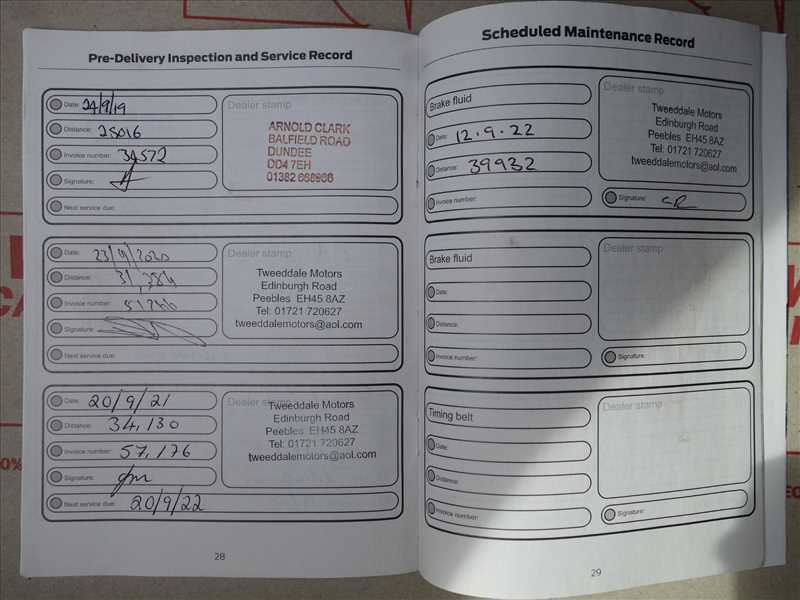 Pre-Delivery Inspection and Service Record
Date: 24/9/19
Distance: 25016
Invoice number: 34572
Signature:
Next service due:
Dealer stamp
ARNOLD CLARK
BALFIELD ROAD
DUNDEE
DD4 7EH
01382 668966
Date: 23/9/2020
Distance: 31,384
Invoice number:
Signature:
Next service due:
Dealer stamp
Tweeddale Motors
Edinburgh Road
Peebles EH45 8AZ
Tel: 01721 720627
tweeddalemotors@aol.com
Date: 20/9/21
Distance: 34,130
Invoice number: 57,176
Signature:
Next service due: 20/9/22
Dealer stamp
Tweeddale Motors
Edinburgh Road
Peebles EH45 8AZ
Tel: 01721 720627
tweeddalemotors@aol.com
28
Scheduled Maintenance Record
Brake fluid
Date: 12.9.22
Distance: 39932
Invoice number:
Dealer stamp
Tweeddale Motors
Edinburgh Road
Peebles EH45 8AZ
Tel: 01721 720627
tweeddalemotors@aol.com
Signature: CR
Brake fluid
Date:
Distance:
Invoice number:
Dealer stamp
Signature:
Timing belt
Date:
Distance:
Invoice number:
Dealer stamp
Signature:
29